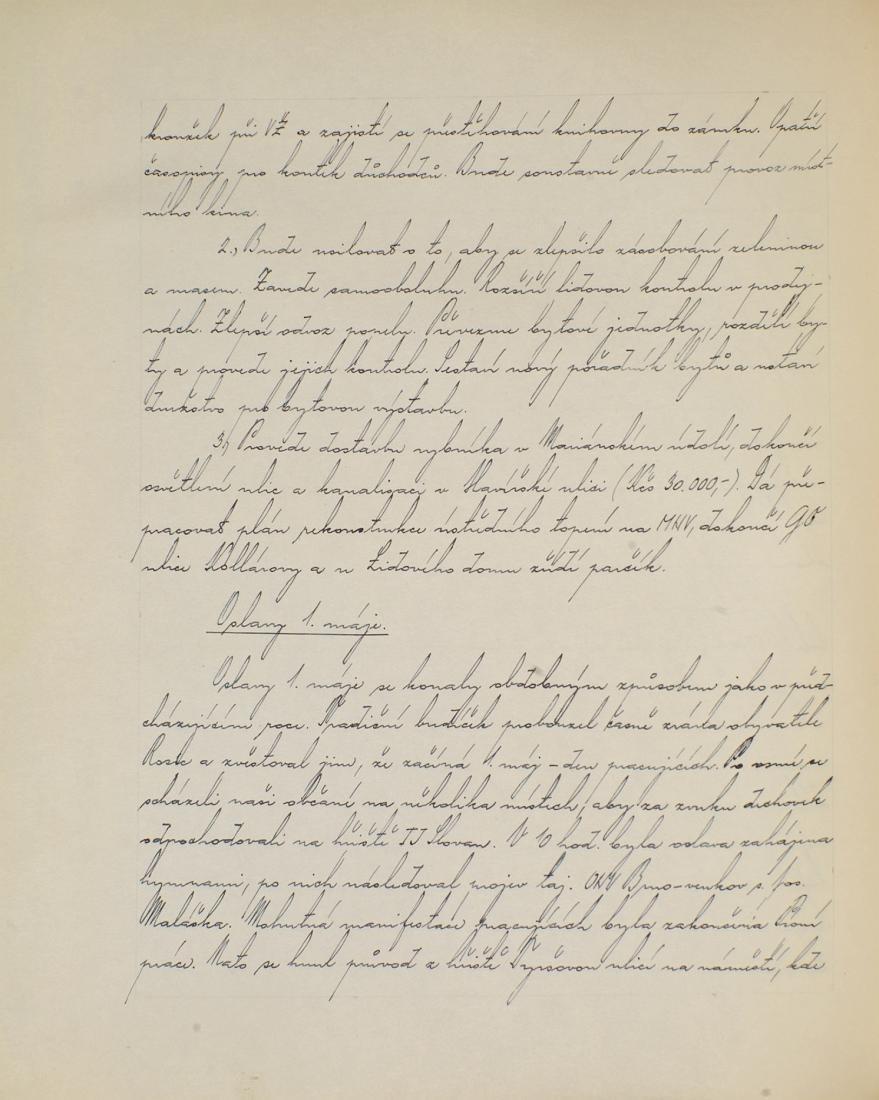 kroužek při VŽ a zajistí se přestěhování knihovny do zámku. Opatří
časopisy pro koutek důchodců. Bude soustavně sledovat provoz míst-
ního kina.
2., Bude usilovat o to, aby se zlepšilo zásobování zeleninou
a masem. Zavede samoobsluhu. Rozšíří lidovou kontrolu v prodej-
nách. Zlepší odvoz popela. Převezme bytové jednotky, rozdělí by-
ty a provede jejich kontrolu. Sestaví nový pořadník bytů a ustaví
družstvo pro bytovou výstavbu.
3., Provede dostavbu rybníka v Mariánském údolí, dokončí
osvětlení ulic a kanalizaci v Havířské ulici (Kčs 30.000,-). Dá pře-
pracovat plán rekonstrukce ústředního topení na MNV, dokončí GO
ulice Kollárovy a u Lidového domu zřídí parčík.
Oslavy 1. máje.
Oslavy 1. máje se konaly obdobným způsobem jako v před-
cházejícím roce. Tradiční budíček probouzel časně zrána obyvatele
Rosic a zvěstoval jim, že začíná 1. máj - den pracujících. Po osmé se
scházeli naši občané na několika místech, aby za zvuku dechovek
odpochodovali na hřiště TJ Slovan. V 10 hod. byla oslava zahájena
hymnami, po nich následoval projev taj. ONV Brno-venkov s. Jos.
Maláška. Mohutná manifestace pracujících byla zakončena Písní
práce. Nato se hnul průvod z hřiště Tyršovou ulicí na náměstí, kde